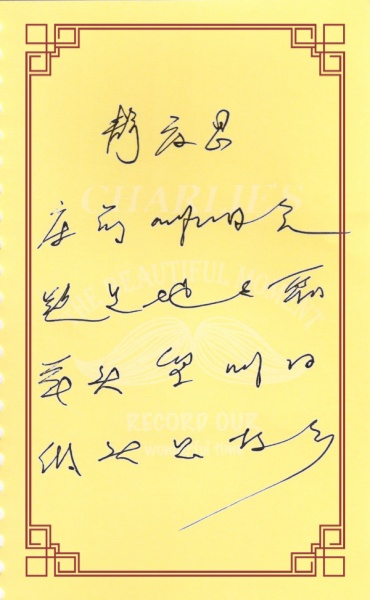 静夜思
CHARLIE'S
床前明月光
THE BEAUTIFUL MOMENT
疑是地上霜
举头望明月
RECORD OUR
低头思故乡